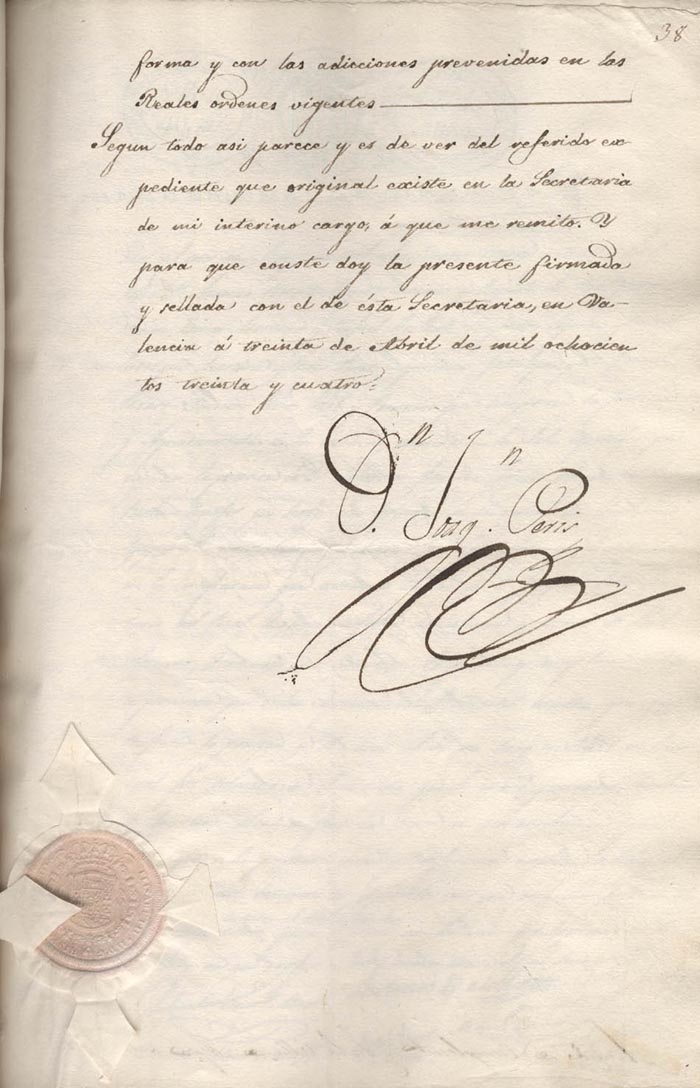 38
forma y con las adicciones prevenidas en las
Reales ordenes vigentes
Segun todo asi parece y es de ver del referido ex-
pediente que original existe en la Secretaria
de mi interino cargo, á que me remito. Y
para que conste doy la presente firmada
y sellada con el de ésta Secretaria, en Va-
lencia á treinta de Abril de mil ochocien
tos treinta y cuatro =
Dn. Joaqn. Peris